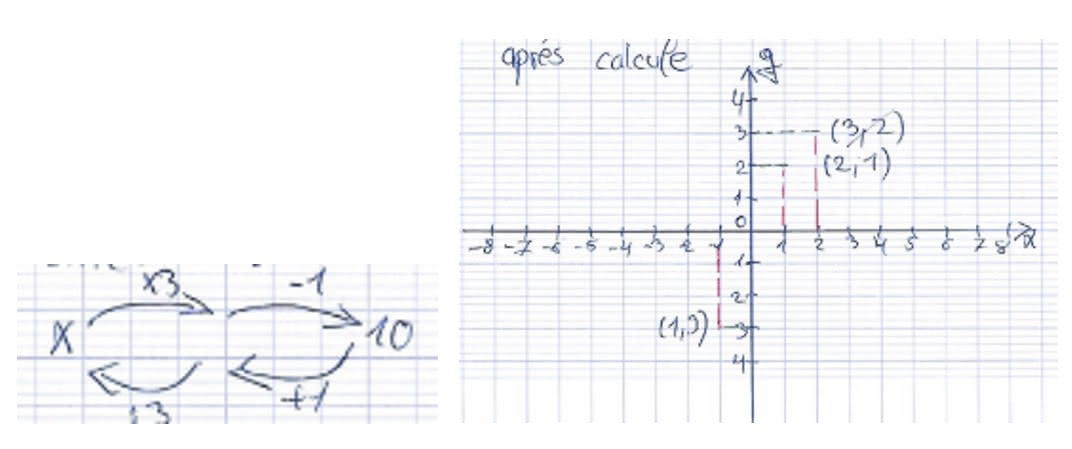 aprés calcule
y
4
3 (3,2)
2 (2,1)
1
0
-8 -7 -6 -5 -4 -3 -2 -1 1 2 3 4 5 6 7 8 x
1
2
(1,3) -3
4
x3 -1
X 10
:3 +1